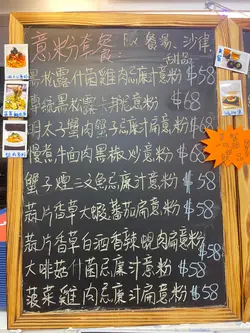 意粉套餐: 餐湯、沙律
甜品
黑松露什菌雞肉忌廉汁意粉 $58
黑松露 意粉 $68
明太子蟹肉蟹子忌廉汁意粉 $68
慢煮牛面肉黑椒炒意粉 $68
蟹子煙三文魚忌廉汁意粉 $58
蒜片香草大蝦蕃茄扁意粉 $68
蒜片香草白酒香辣蜆肉扁意粉
$58
大啡菇什菌忌廉汁意粉 $58
菠菜雞肉忌廉汁扁意粉 $58